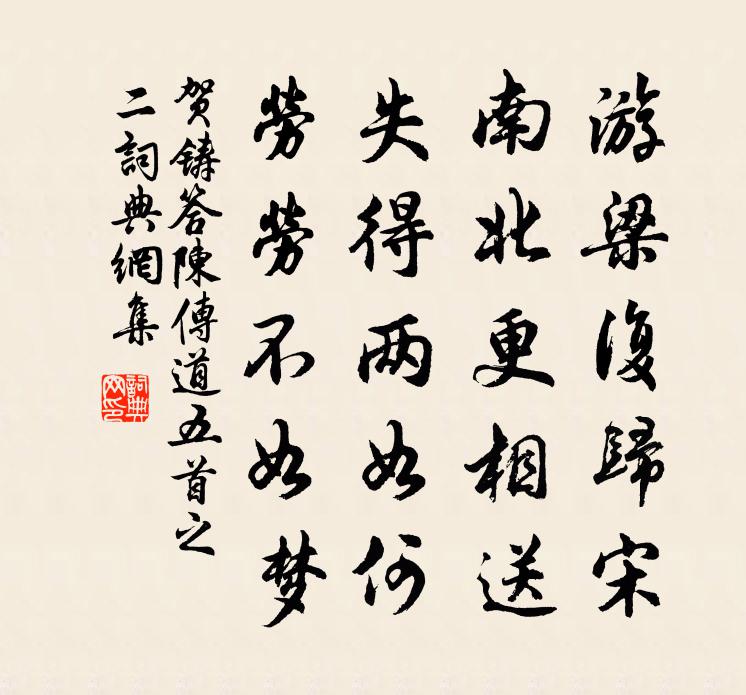 游梁復歸宋
南北更相送
失得两如何
勞勞不如梦
贺鑄答陳傅道五首之
二詞典網集
詞典网印